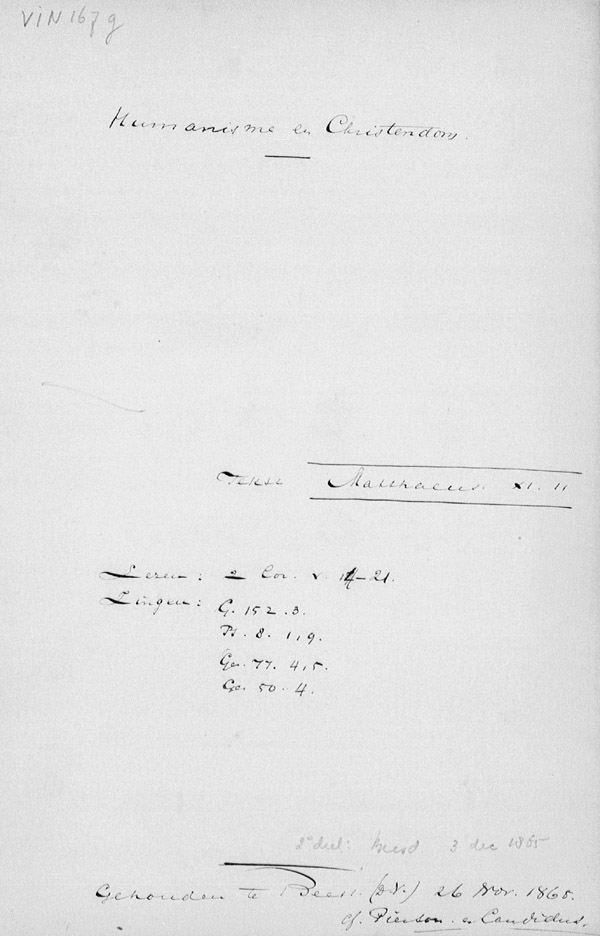 VIN 167 g
Humanisme en Christendom.
Tekst Matthaeus. XI. 11
Lezen: 2 Cor. v. 14-21.
Zingen: G. 152. 3.
Ps. 8. 1, 9.
Ge. 77. 4, 5.
Ge. 50. 4.
2e deel: Beesd 3 dec 1865
Gehouden te Beesd. (D.V.) 26 Nov. 1865.
cf. Pierson en Candidus.